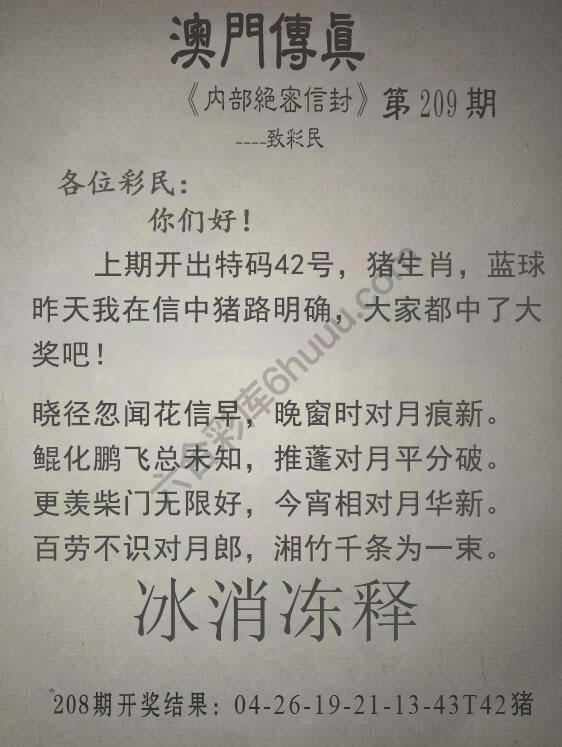 澳門傳眞
《内部絕密信封》第209期
----致彩民
各位彩民：
你们好！
上期开出特码42号，猪生肖，蓝球
昨天我在信中猪路明确，大家都中了大
奖吧！
晓径忽闻花信早，晚窗时对月痕新。
鲲化鹏飞总未知，推蓬对月平分破。
更羡柴门无限好，今宵相对月华新。
百劳不识对月郎，湘竹千条为一束。
冰消冻释
208期开奖结果：04-26-19-21-13-43T42猪
六合彩库6huuu.com